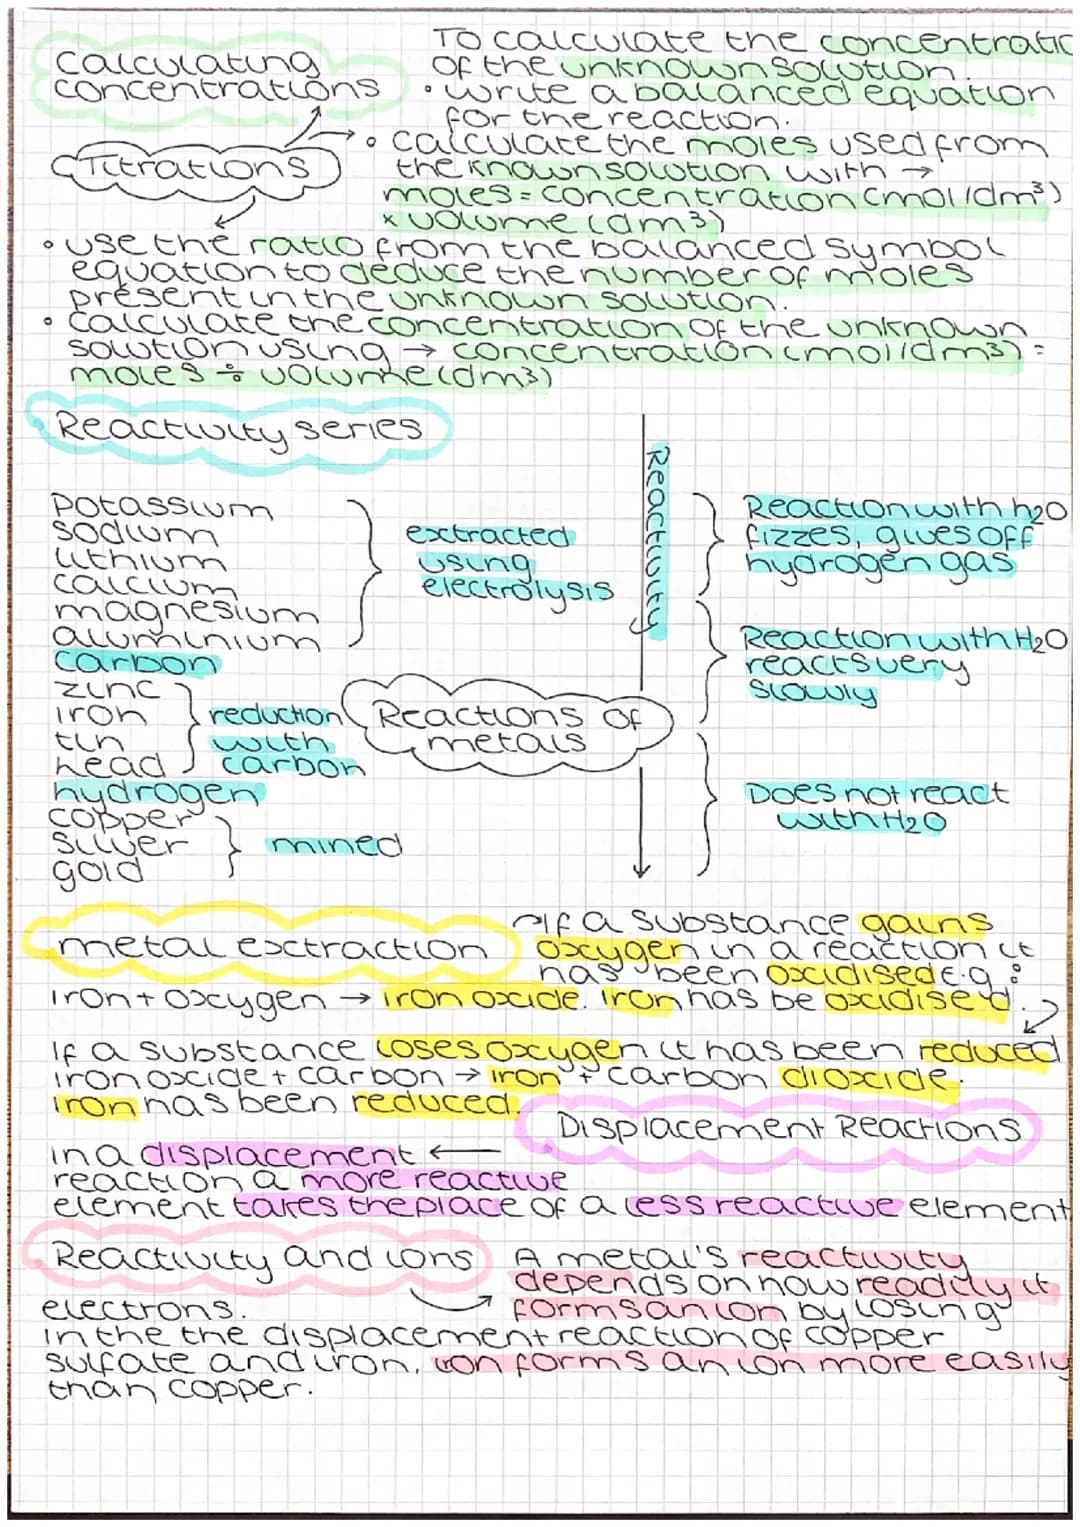 Calculating
concentrations
Titrations
To calculate the concentratio
of the unknown solution.
• write a balanced equation
for the reaction.
• calculate the moles used from
the known solution with →
moles = concentration (mol/dm³)
x volume (dm³)
• use the ratio from the balanced symbol
equation to deduce the number of moles
present in the unknown solution.
• calculate the concentration of the unknown
solution using → concentration (mol/dm³) =
moles ÷ volume (dm³)
Reactivity series
potassium
sodium
lithium
calcium
magnesium
aluminium
carbon
zinc
iron
tin
head
hydrogen
copper
silver
gold
extracted
using
electrolysis
reduction
with
carbon
mined
Reactivity
Reactions of
metals
Reaction with h2O
fizzes, gives off
hydrogen gas
Reaction with H2O
reacts very
slowly
Does not react
with H2O
metal extraction
If a substance gains
oxygen in a reaction it
has been oxidised e.g:
iron + oxygen → iron oxide. Iron has be oxidised.
If a substance loses oxygen it has been reduced
iron oxide + carbon → iron + carbon dioxide.
iron has been reduced.
Displacement Reactions
in a displacement ←
reaction a more reactive
element takes the place of a less reactive element
Reactivity and ions
A metal's reactivity
depends on how readily it
forms an ion by losing
electrons.
in the the displacement reaction of copper
sulfate and iron, iron forms an ion more easily
than copper.